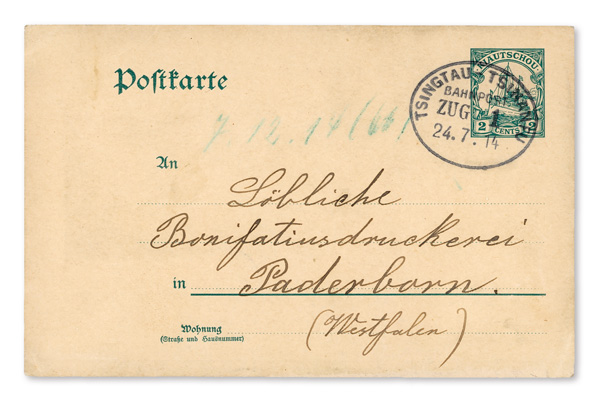 Postkarte
KIAUTSCHOU
2 CENTS 2
TSINGTAU TSINANFU
BAHNPOST
ZUG 1
24.7.14
7.12.14 (66)
An
Löbliche
Bonifatiusdruckerei
in Paderborn.
(Westfalen)
Wohnung
(Straße und Hausnummer)